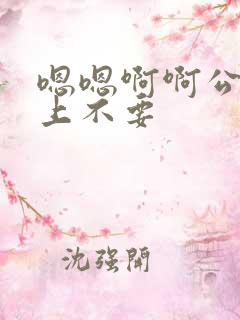 嗯嗯啊啊公
上不要
沈强開